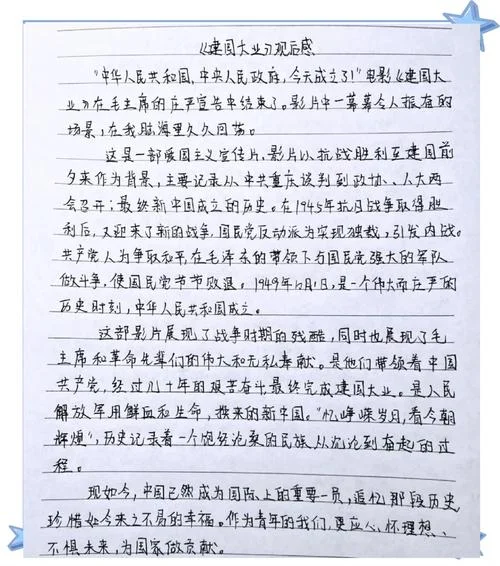 《建国大业》观后感
“中华人民共和国,中央人民政府,今天成立了!”电影《建国大
业》在毛主席的庄严宣告中结束了。影片中一幕幕令人振奋的
场景,在我脑海里久久回荡。
这是一部爱国主义宣传片,影片以抗战胜利至建国前
夕来作为背景,主要记录从中共重庆谈判到政协、人大两
会召开;最终新中国成立的历史。在1945年抗日战争取得胜
利后,又迎来了新的战争,国民党反动派为实现独裁,引发内战。
共产党人为争取和平在毛泽东的带领下与国民党强大的军队
做斗争,使国民党节节败退。1949年10月1日,是一个伟大而庄严的
历史时刻,中华人民共和国成立。
这部影片展现了战争时期的残酷,同时也展现了毛
主席和革命先辈们的伟大和无私奉献。是他们带领着中国
共产党,经过几十年的艰苦奋斗最终完成建国大业。是人民
解放军用鲜血和生命,换来的新中国。“忆峥嵘岁月,看今朝
辉煌”,历史记录着一个饱经沧桑的民族从沉沦到奋起的过
程。
现如今,中国已然成为国际上的重要一员,追忆那段历史
珍惜如今来之不易的幸福。作为青年的我们,更应心怀理想、
不惧未来,为国家做贡献。